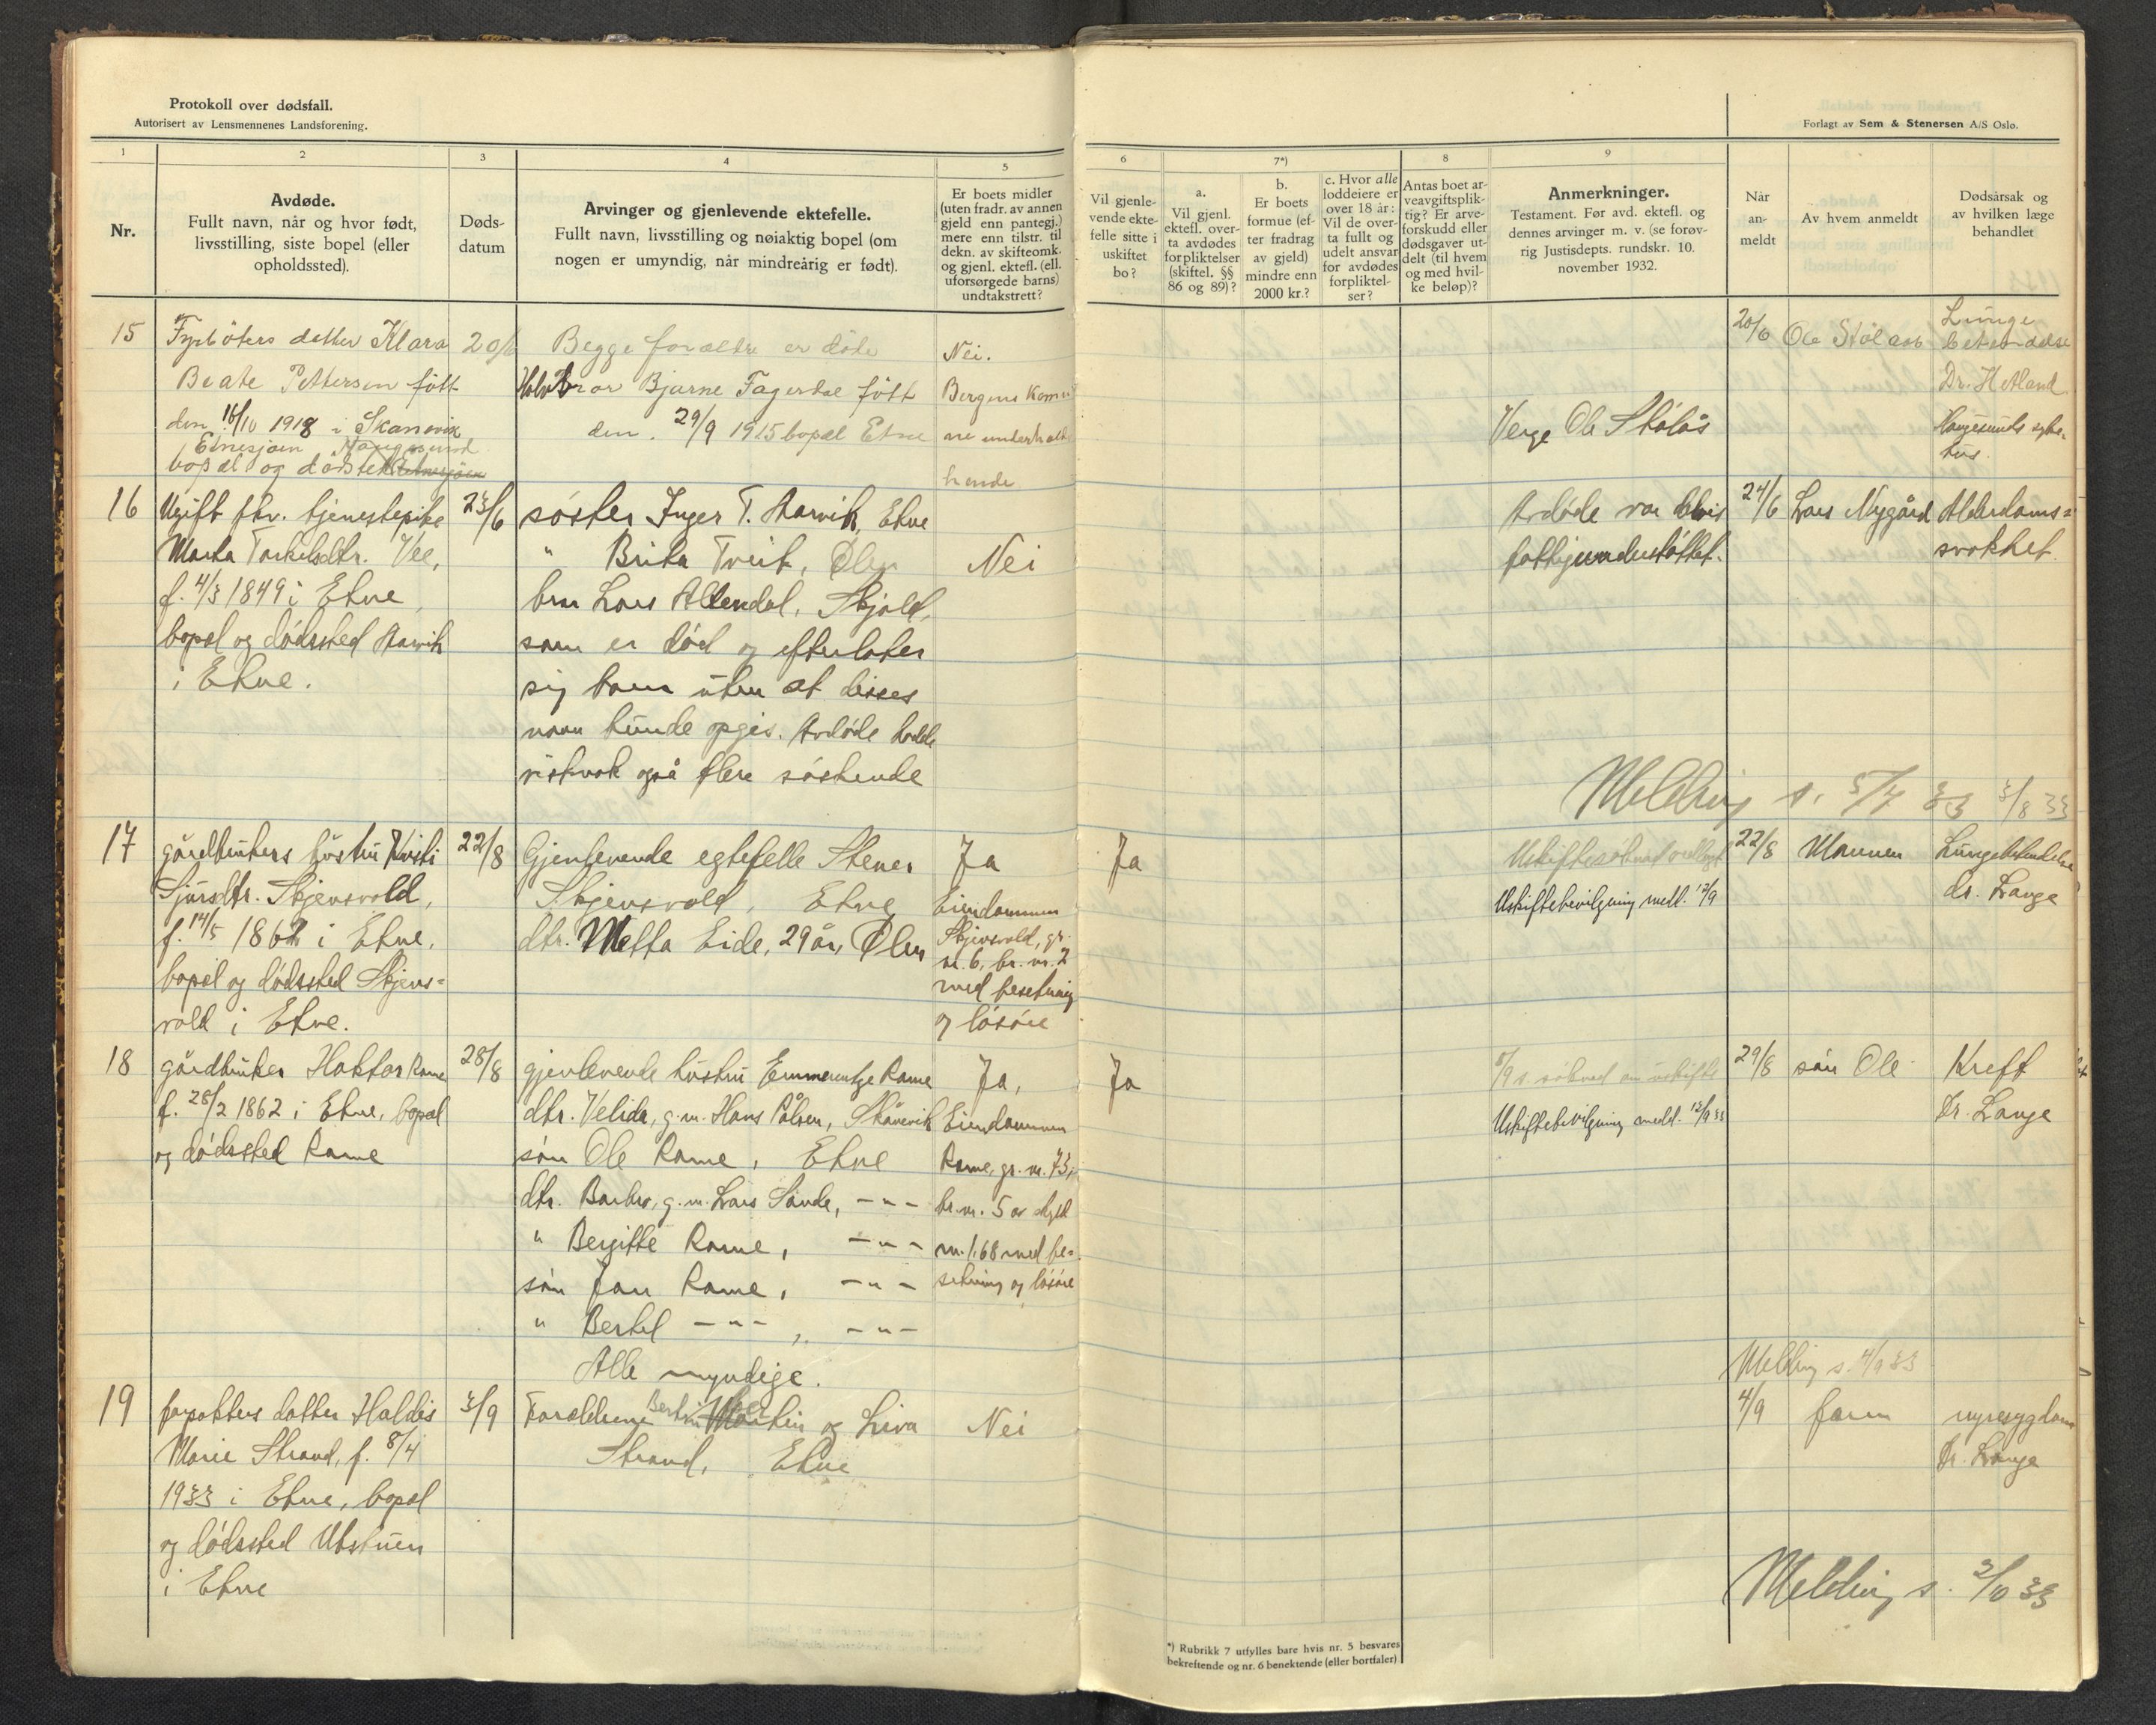 Protokoll over dødsfall.
Autorisert av Lensmennenes Landsforening.
Forlagt av Sem & Stenersen A/S Oslo.
1
2
3
4
5
6
7*)
8
9
Nr.
Avdøde.
Fullt navn, når og hvor født,
livsstilling, siste bopel (eller
opholdssted).
Døds-
datum
Arvinger og gjenlevende ektefelle.
Fullt navn, livsstilling og nøiaktig bopel (om
nogen er umyndig, når mindreårig er født).
Er boets midler
(uten fradr. av annen
gjeld enn pantegj.)
mere enn tilstr. til
dekn. av skifteomk.
og gjenl. ektefl. (ell.
uforsørgede barns)
undtakstrett?
Vil gjenle-
vende ekte-
felle sitte i
uskiftet
bo?
a.
Vil gjenl.
ektefl. over-
ta avdødes
forpliktelser
(skiftel. §§
86 og 89)?
b.
Er boets
formue (ef-
ter fradrag
av gjeld)
mindre enn
2000 kr.?
c. Hvor alle
loddeiere er
over 18 år:
Vil de over-
ta fullt og
udelt ansvar
for avdødes
forpliktel-
ser?
Antas boet ar-
veavgiftsplik-
tig? Er arve-
forskudd eller
dødsgaver ut-
delt (til hvem
og med hvil-
ke beløp)?
Anmerkninger.
Testament. Før avd. ektefl. og
dennes arvinger m. v. (se forøv-
rig Justisdepts. rundskr. 10.
november 1932.
Når
an-
meldt
Av hvem anmeldt
Dødsårsak og
av hvilken læge
behandlet
15
Fyrbøters datter Klara
Beate Pettersen født
den 16/10 1918 i Skanevik
Etnesjøen Haugesund
bopæl og dødsted Etnesjøen
20/6
Begge foræeldre er døde
Halvbror Bjarne Fagerdal født
den. 29/9 1915 bopæl Etne
Nei.
Bergens Komu
ne underholdt
hende
Verge Ole Stølås
20/6
Ole Stølås
Lunge
betendelse
Dr. Hetland
Haugesunds syke-
hus.
16
Ugift fhv. tjenestepike
Marta Torkelsdtr. Vee,
f. 4/3 1849 i Etne,
bopel og dødssted Aarvik
i Etne.
23/6
søster Inger T. Aarvik, Etne
" Brita Tveit, Ølen
bror Lars Allendal, Skjold,
som er død og efterlater
sig barn uten at disses
navn kunde opgis. Avdøde hadde
nistnok også flere søskende
Nei
Avdøde var delvis
fattigunderstøttet.
24/6
Lars Nygård
Alderdoms=
svakhet.
Melding s. 5/7 33 3/8 33
17
gårdbrukers hustru Kristi
Sjursdtr. Skjensvold,
f. 14/5 1862 i Etne,
bopel og dødssted Skjens=
vold i Etne.
22/8
Gjenlevende egtefelle Stener
Skjensvold, Etne
dtr. Metta Eide, 29 år, Ølen
Ja
Eiendommen
Skjensvold, gr.
nr. 6, br. nr. 2
med besetning
og løsøre
Ja
Uskiftesøknad vedlagt
Uskiftebevilgning medd. 12/9
22/8
Mannen
Lungebetendelse
dr. Lange
18
gårdbruker Haktor Rame
f. 28/2 1862 i Etne, bopel
og dødssted Rame
28/8
gjenlevende hustru Emmerentze Rame
dtr. Velida, g. m. Hans Pålsen, Skånevik
søn Ole Rame, Etne
dtr. Barbro, g. m. Lars Sande, - " -
" Bergitte Rame, - " -
søn Jan Rame, - " -
" Bertel - " -, - " -
Alle myndige.
Ja,
Eiendommen
Rame, gr. nr. 73,
br. nr. 5 av skyld
m. 1.68 med be-
setning og løsøre
Ja
8/9 s. søknad om uskifte
Uskiftebevilgning medd. 12/9 33
29/8
søn Ole
Kreft
Dr. Lange
Melding s. 4/9 33
19
forpakters datter Haldis
Marie Strand, f. 8/4
1933 i Etne, bopel
og dødssted Utstuen
i Etne
3/9
Foreldrene Bertin Martin og Liva
Strand, Etne
Nei
4/9
faren
nyresygdom
Dr. Lange
Melding s. 2/10 33
*) Rubrikk 7 utfylles bare hvis nr. 5 besvares
bekreftende og nr. 6 benektende (eller bortfaler)